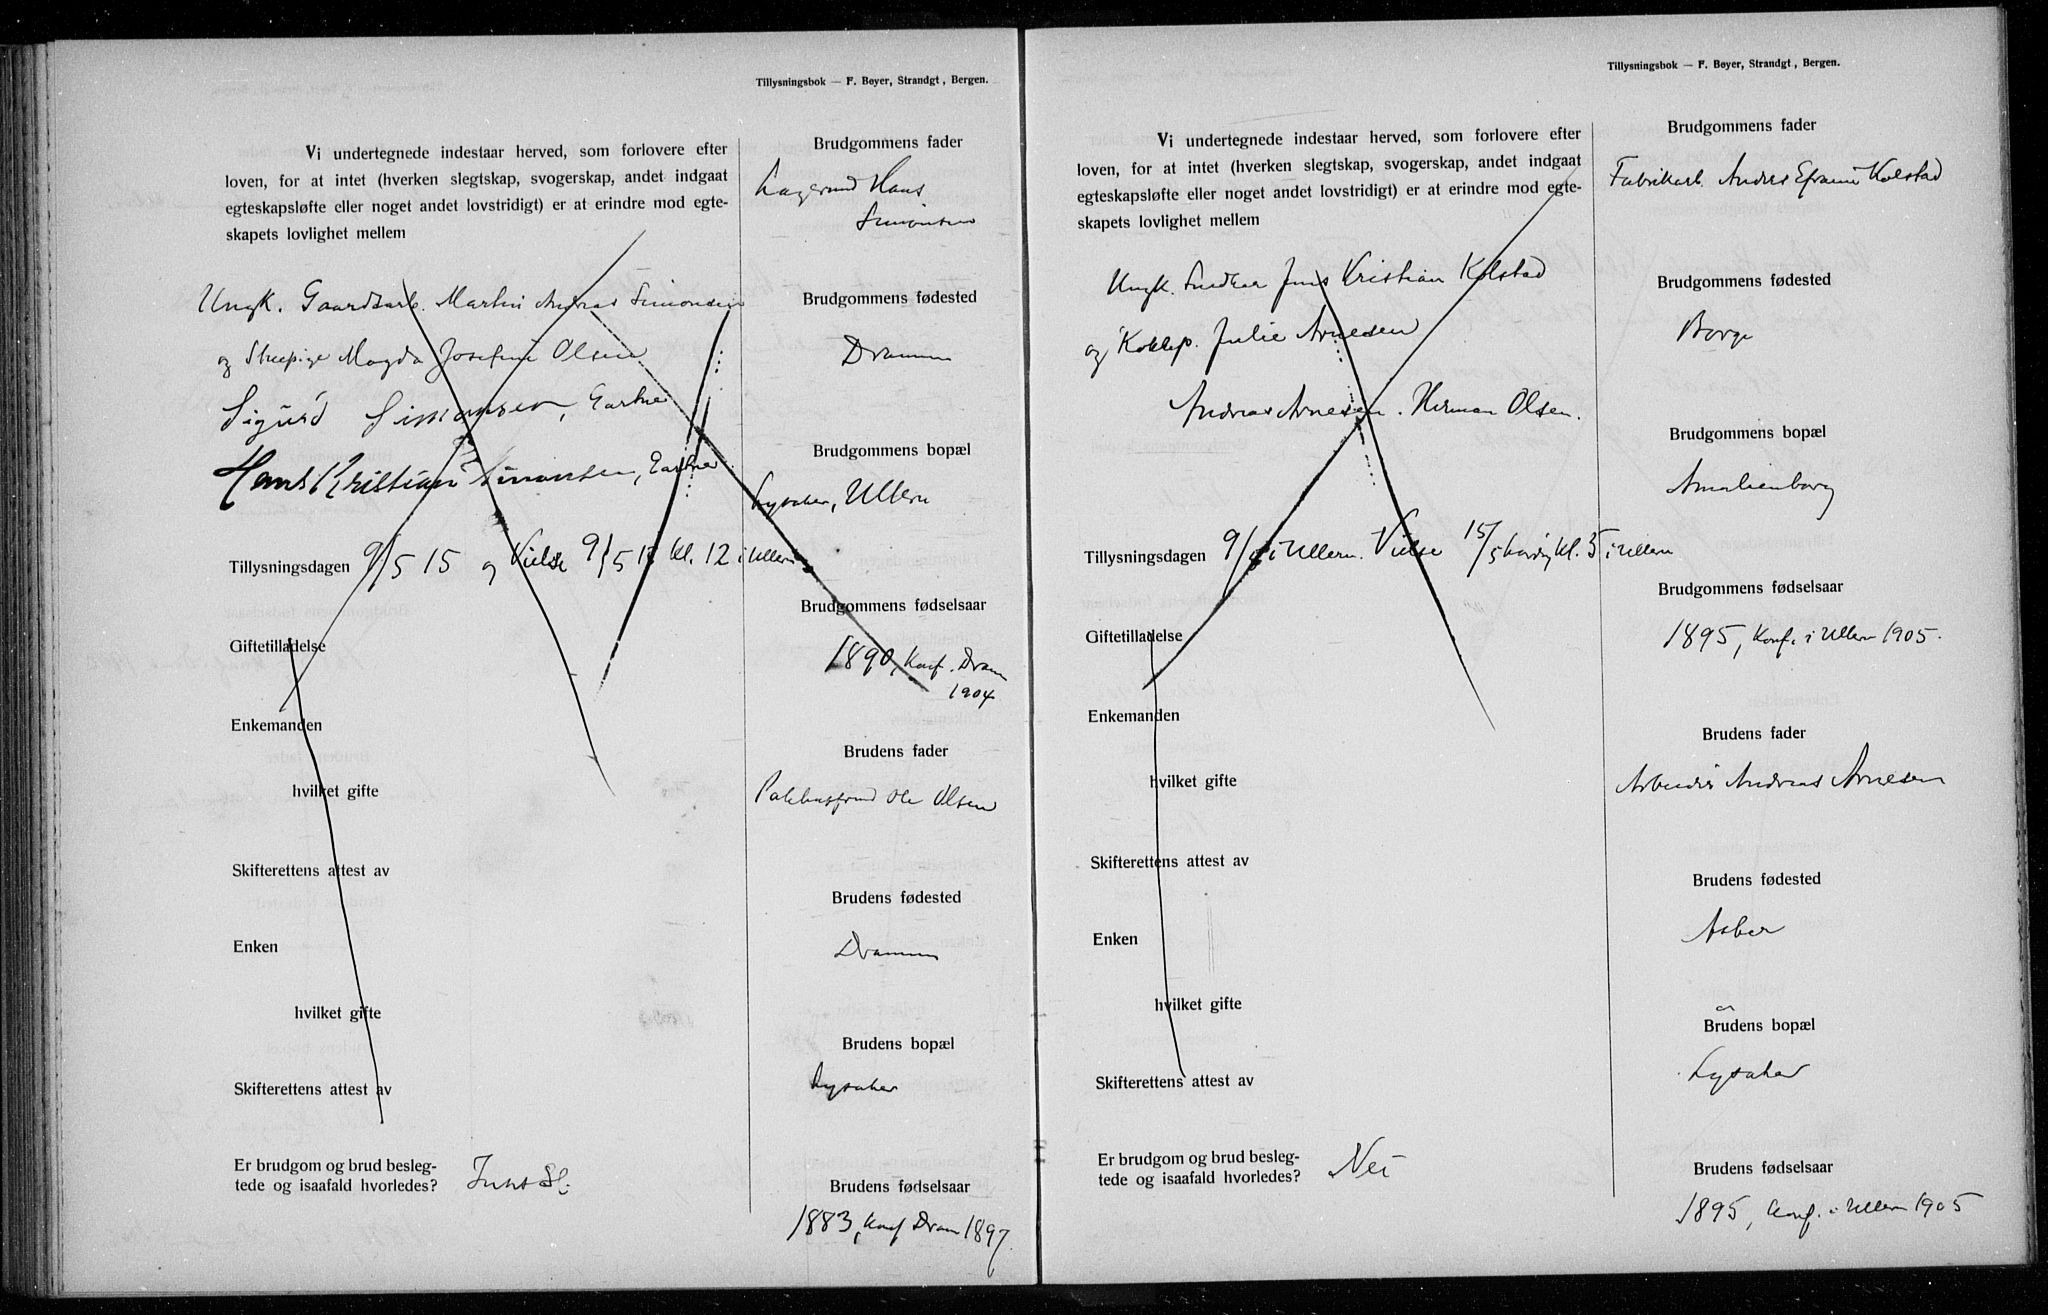 Tillysningsbok — F. Beyer, Strandgt, Bergen.
Vi undertegnede indestaar herved, som forlovere efter
loven, for at intet (hverken slegtskap, svogerskap, andet indgaat
egteskapsløfte eller noget andet lovstridigt) er at erindre mod egte-
skapets lovlighet mellem
Ungk. Gaardsarb. Martin Andreas Simonsen
og Magda Josefine Olsen
Sigurd Simonsen,
Hans Kristian Simonsen,
Tillysningsdagen 9/5 15 og Vielse 9/5 15 kl. 12 i Ullern
Giftetilladelse
Enkemanden
hvilket gifte
Skifterettens attest av
Enken
hvilket gifte
Skifterettens attest av
Er brudgom og brud besleg-
tede og isaafald hvorledes?
Brudgommens fader
Hans
Simonsen
Brudgommens fødested
Drammen
Brudgommens bopæl
Lysaker, Ullern
Brudgommens fødselsaar
1890, Konf. Dram
1904
Brudens fader
Ole Olsen
Brudens fødested
Drammen
Brudens bopæl
Lysaker
Brudens fødselsaar
1883, Konf Dram 1897
Tillysningsbok — F. Beyer, Strandgt, Bergen.
Vi undertegnede indestaar herved, som forlovere efter
loven, for at intet (hverken slegtskap, svogerskap, andet indgaat
egteskapsløfte eller noget andet lovstridigt) er at erindre mod egte-
skapets lovlighet mellem
Ungk. Snedker Jens Kristian Kolstad
og Julie Arnesen
Andreas Arnesen. Herman Olsen.
Tillysningsdagen 9/5 i Ullern. Vielse 15/5 kl. 5 i Ullern
Giftetilladelse
Enkemanden
hvilket gifte
Skifterettens attest av
Enken
hvilket gifte
Skifterettens attest av
Er brudgom og brud besleg-
tede og isaafald hvorledes? Nei
Brudgommens fader
Fabrikarb. Andres Efraim Kolstad
Brudgommens fødested
Borge
Brudgommens bopæl
Amalienborg
Brudgommens fødselsaar
1895, Konf. i Ullern 1905.
Brudens fader
Arbeider Andreas Arnesen
Brudens fødested
Asker
Brudens bopæl
Lysaker
Brudens fødselsaar
1895, Konf. i Ullern 1905